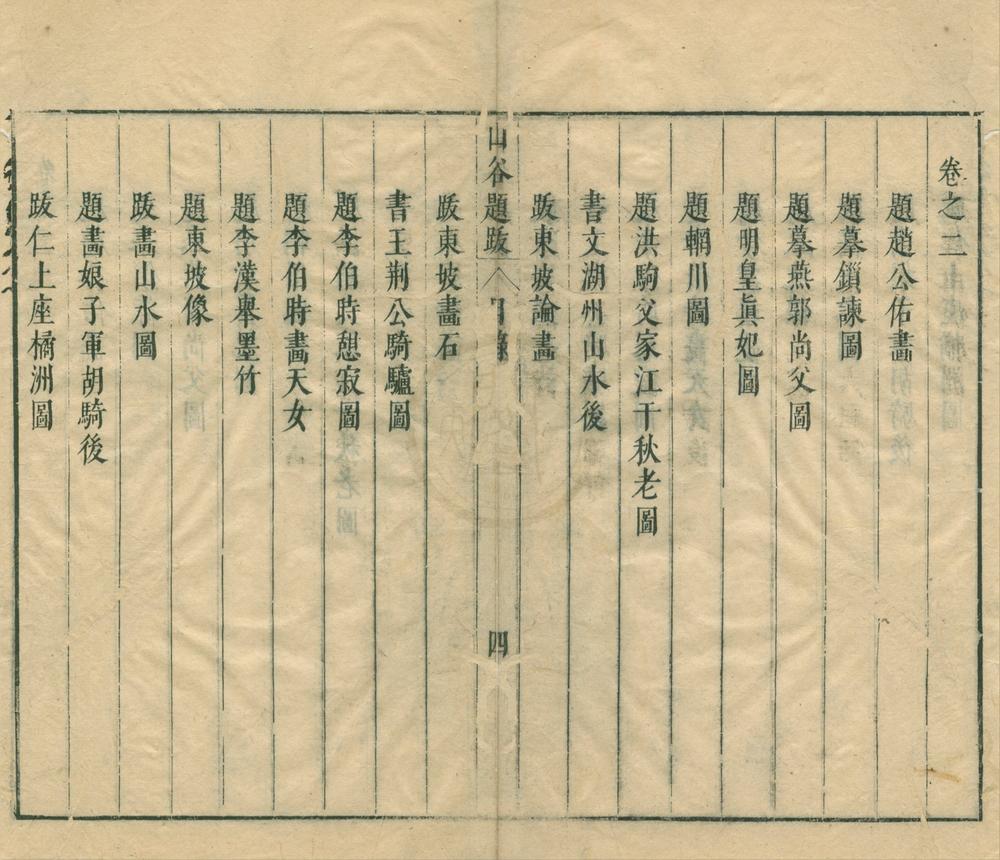 卷之三
題趙公佑畫
題摹鎖諫圖
題摹燕郭尚父圖
題明皇真妃圖
題輞川圖
題洪駒父家江干秋老圖
書文湖州山水後
跋東坡論畫
山谷題跋 目錄 四
跋東坡畫石
書王荊公騎驢圖
題李伯時憩寂圖
題李伯時畫天女
題李漢舉墨竹
題東坡像
跋畫山水圖
題畫娘子軍胡騎後
跋仁上座橘洲圖